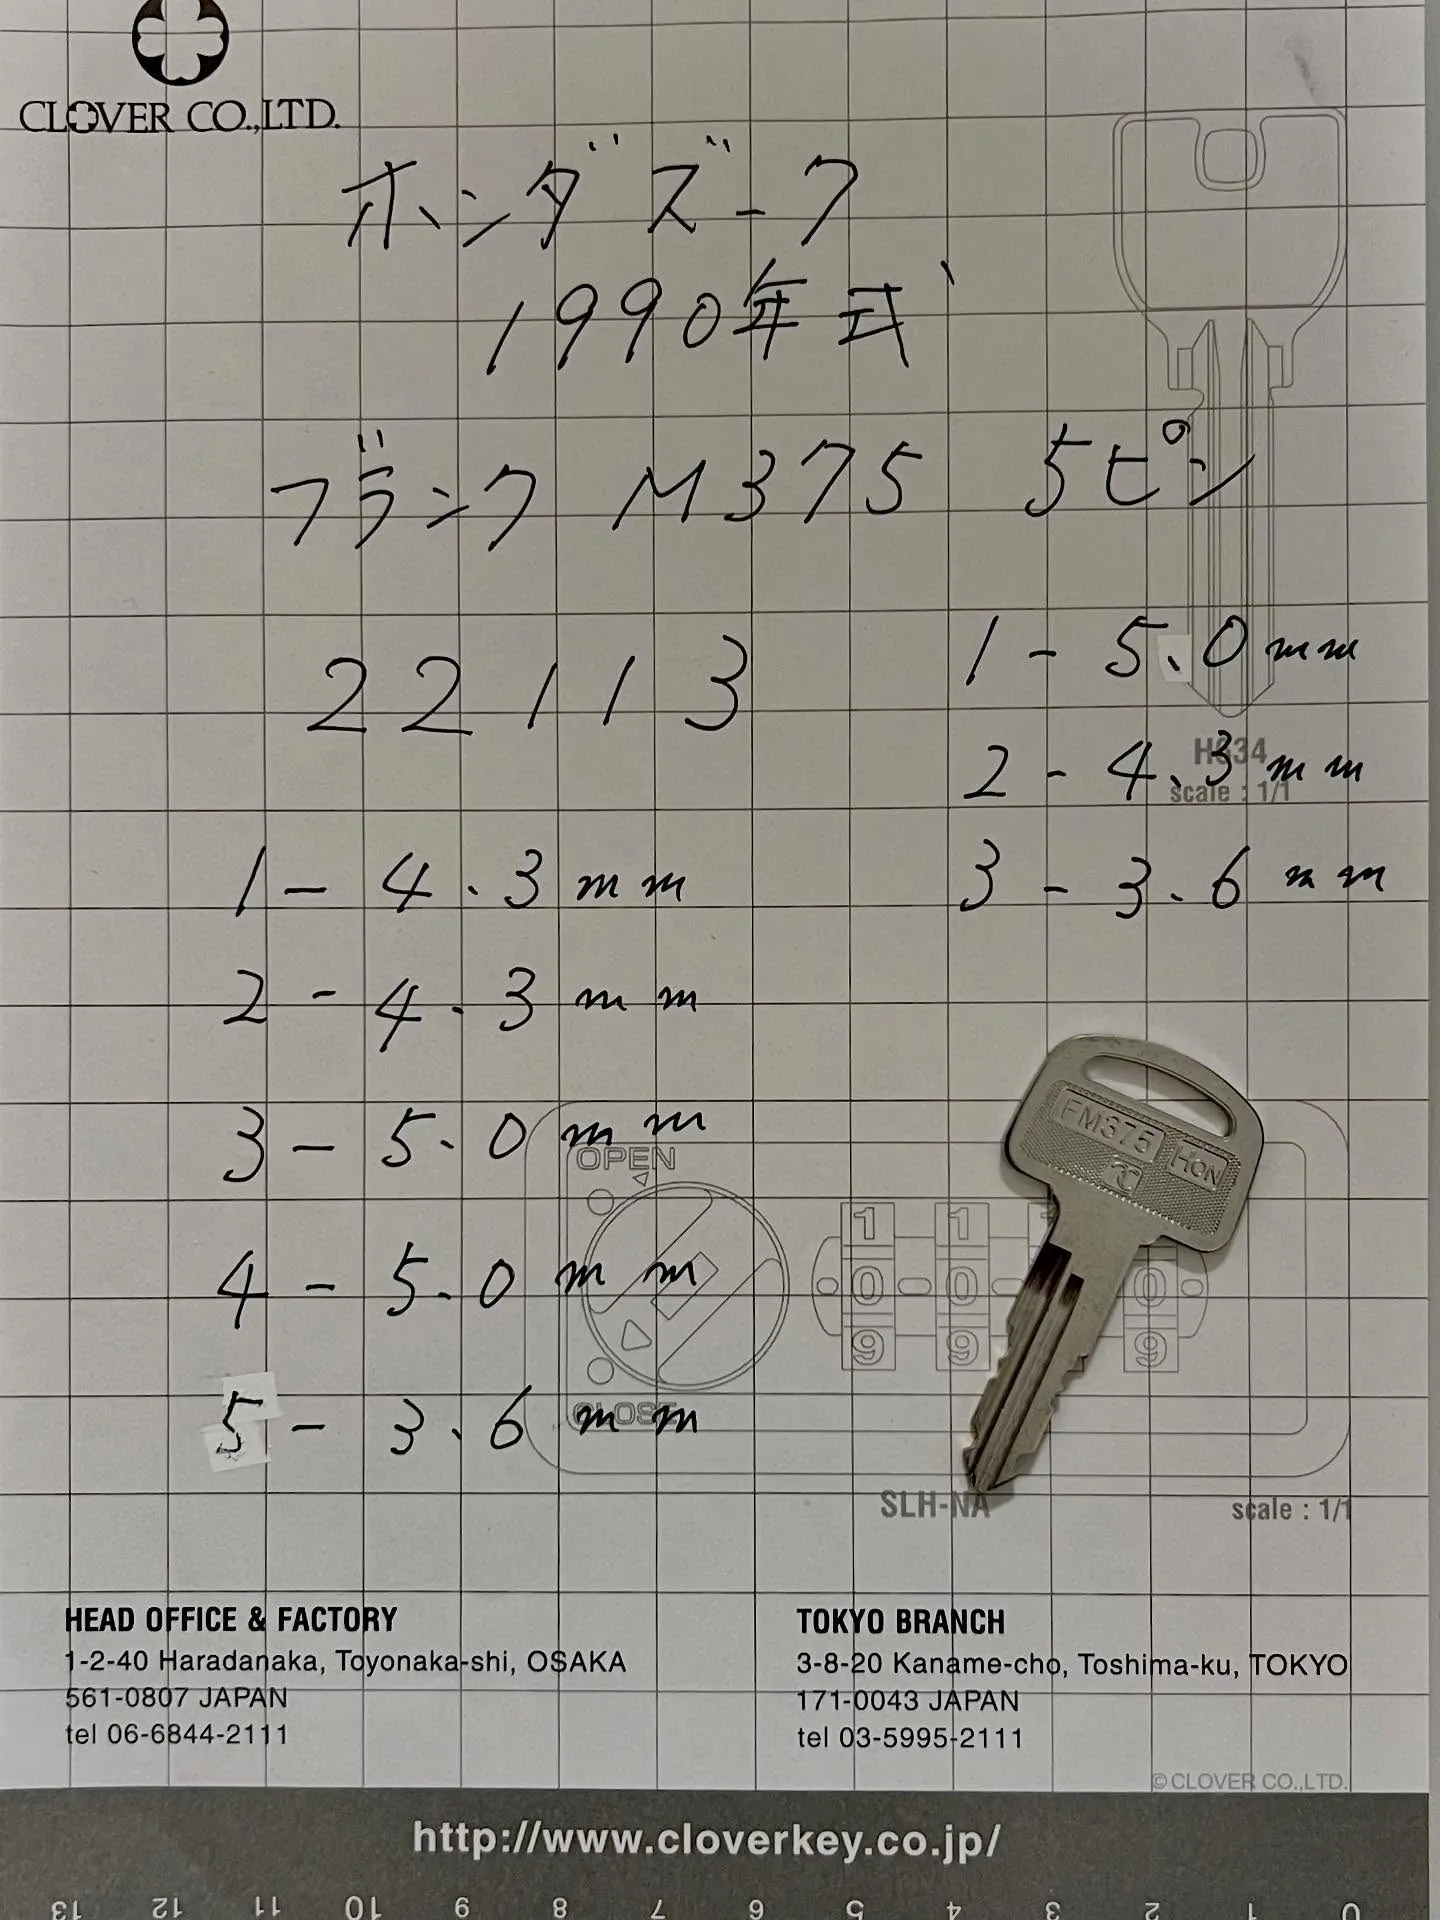 CLOVER CO.,LTD.
ホンダズーク
1990年式
ブランク M375 5ピン
22113
1-5.0mm
2-4.3mm
3-3.6mm
H634
scale : 1/1
1-4.3mm
2-4.3mm
3-5.0mm
4-5.0mm
5-3.6mm
FM375
HON
OPEN
1 1
0 0 0
9 9 9
CLOSE
SLH-NA
scale : 1/1
HEAD OFFICE & FACTORY
1-2-40 Haradanaka, Toyonaka-shi, OSAKA
561-0807 JAPAN
tel 06-6844-2111
TOKYO BRANCH
3-8-20 Kaname-cho, Toshima-ku, TOKYO
171-0043 JAPAN
tel 03-5995-2111
©CLOVER CO.,LTD.
http://www.cloverkey.co.jp/
13 12 11 10 9 8 7 6 5 4 3 2 1 0